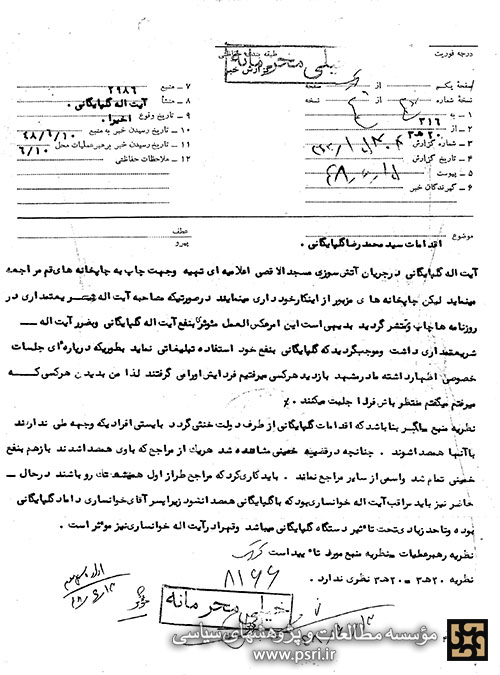 درجه فوریت
طبقه بندی حفاظتی
خیلی محرمانه
گزارش خبر
صفحه یکم از صفحه
نسخه شماره از نسخه
۱ ـ به ۳۱۶
۲ ـ از ۲۰ هـ ۳
۳ ـ شماره گزارش
۴ ـ تاریخ گزارش
۵ ـ پیوست
۶ ـ گیرندگان خبر
۷ ـ منبع ۲۹۸۶
۸ ـ منشأ آیت اله گلپایگانی .
۹ ـ تاریخ وقوع اخیرا .
۱۰ ـ تاریخ رسیدن خبر به منبع ۴۸/۶/۱۰
۱۱ ـ تاریخ رسیدن خبر برهبر عملیات محل ۶/۱۰
۱۲ ـ ملاحظات حفاظتی
موضوع
اقدامات سید محمد رضا گلپایگانی .
عطف
پیرو
آیت اله گلپایگانی در جریان آتش سوزی مسجد الاقصی اعلامیه ای تهیه وجهت چاپ به چاپخانه های قم مراجعه
مینماید لیکن چاپخانه های مزبور از اینکار خود داری مینمایند در صورتیکه مصاحبه آیت اله شریعتمداری در
روزنامه ها چاپ و منتشر گردید بدیهی است این امر عکس العمل موثری بنفع آیت اله گلپایگانی وبضرر آیت اله
شریعتمداری داشت وموجب گردید که گلپایگانی بنفع خود استفاده تبلیغاتی نماید بطوریکه درباره ای جلسات
خصوصی اظهار داشته ما در مشهد بازدید هرکسی میرفتیم فردایش اورامی گرفتند لذا من بدیدن هرکسی که
میرفتم میگفتم منتظر باش فردا جلبت میکنند .
نظریه منبع ـ اگر بنا باشد که اقدامات گلپایگانی از طرف دولت خنثی گردد بایستی افرادیکه وجهه ملی ندارند
باآنها همصدا شوند . چنانچه در قضیه خمینی مشاهده شد هریک از مراجع که باوی همصدا شدند بازهم بنفع
خمینی تمام شد واسمی از سایر مراجع نماند . باید کاری کرد که مراجع طراز اول همیشه تک رو باشند در حال
حاضر نیز باید مراقب آیت اله خوانساری بود که با گلپایگانی همصدا نشود زیرا پسر آقای خوانساری داماد گلپایگانی
بوده وتا حد زیادی تحت تاثیر دستگاه گلپایگانی میباشد وقهرا در آیت اله خوانساری نیز موثر است .
نظریه رهبر عملیات ـ نظریه منبع مورد تایید است
نظریه ۲۰ هـ ۳ ـ ۲۰ هـ ۳ نظری ندارد .
۸۱۶۶
خیلی محرمانه
مؤسسه مطالعات و پژوهشهای سیاسی
www.psri.ir